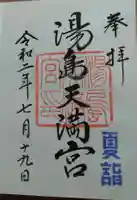 奉拝
夏詣
湯島天満宮
令和二年七月十九日